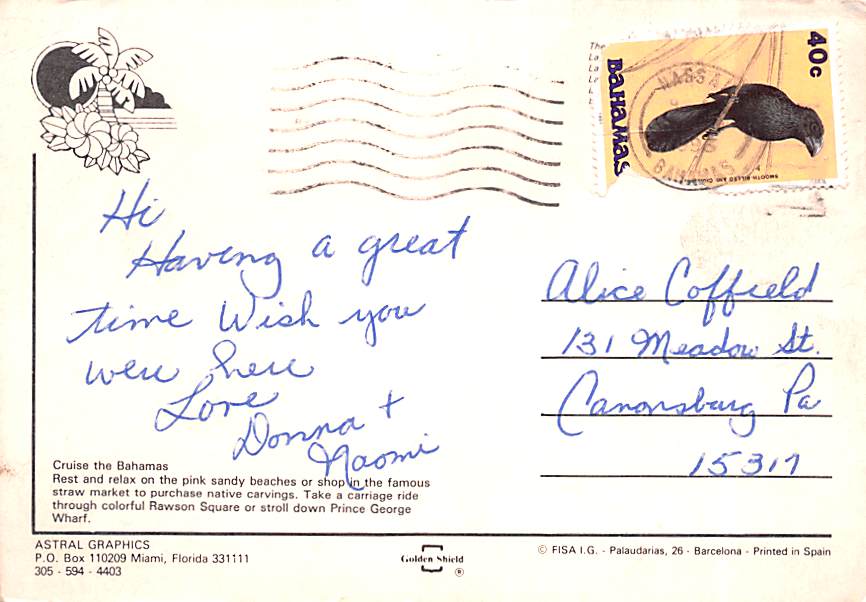 The
La
La
Le
L
BAHAMAS
40c
NASSAU
BAHAMAS
SMOOTH BILLED ANI
Hi
Having a great
time Wish you
were here
Love
Donna +
Naomi
Alice Coffield
131 Meadow St.
Canonsburg Pa
15317
Cruise the Bahamas
Rest and relax on the pink sandy beaches or shop in the famous
straw market to purchase native carvings. Take a carriage ride
through colorful Rawson Square or stroll down Prince George
Wharf.
ASTRAL GRAPHICS
P.O. Box 110209 Miami, Florida 331111
305 - 594 - 4403
Golden Shield
®
© FISA I.G. - Palaudarias, 26 - Barcelona - Printed in Spain